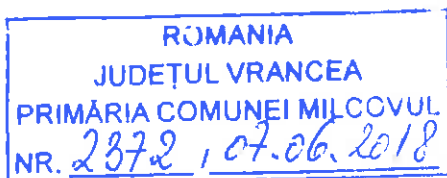 ROMANIA
JUDEȚUL VRANCEA
PRIMĂRIA COMUNEI MILCOVUL
NR. 2372 / 07.06.2018